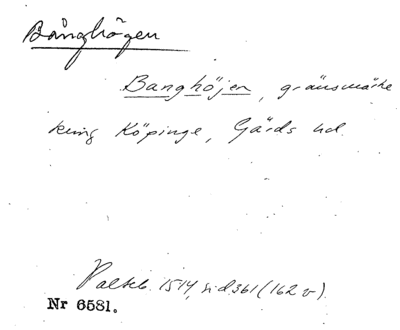 Bånghögen
Banghöjen, gränsmärke
kring Köpinge, Gärds hd.
Palteb. 1514, sid 361 (162 v).
Nr 6581.